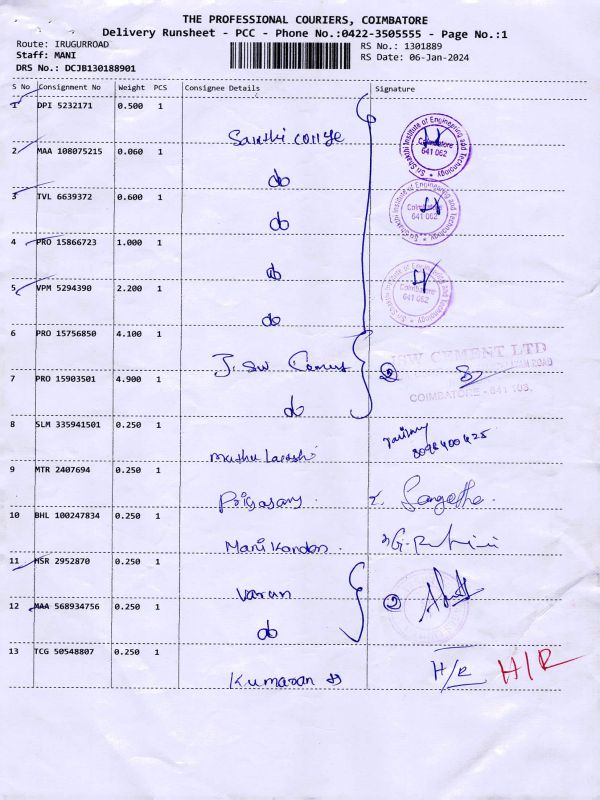 THE PROFESSIONAL COURIERS, COIMBATORE
Delivery Runsheet - PCC - Phone No.:0422-3505555 - Page No.:1
Route: IRUGURROAD
RS No.: 1301889
Staff: MANI
RS Date: 06-Jan-2024
DRS No.: DCJB130188901
S No Consignment No Weight PCS Consignee Details Signature
1 DPI 5232171 0.500 1
Sri Shakthi Institute of Engineering and Technology Coimbatore 641 062
2 MAA 108075215 0.060 1
do
3 TVL 6639372 0.600 1
do
Sri Shakthi Institute of Engineering and Technology Coimbatore 641 062
4 PRO 15866723 1.000 1
do
5 VPM 5294390 2.200 1
do
Sri Shakthi Institute of Engineering and Technology Coimbatore 641 062
6 PRO 15756850 4.100 1
J. SW
JSW CEMENT LTD
ROAD
COIMBATORE - 641 103.
7 PRO 15903501 4.900 1
do
2
8 SLM 335941501 0.250 1
9 MTR 2407694 0.250 1
10 BHL 100247834 0.250 1
Manikandan.
11 HSR 2952870 0.250 1
Varun
12 MAA 568934756 0.250 1
do
2
13 TCG 50548807 0.250 1
Kumaran
H/R H/R